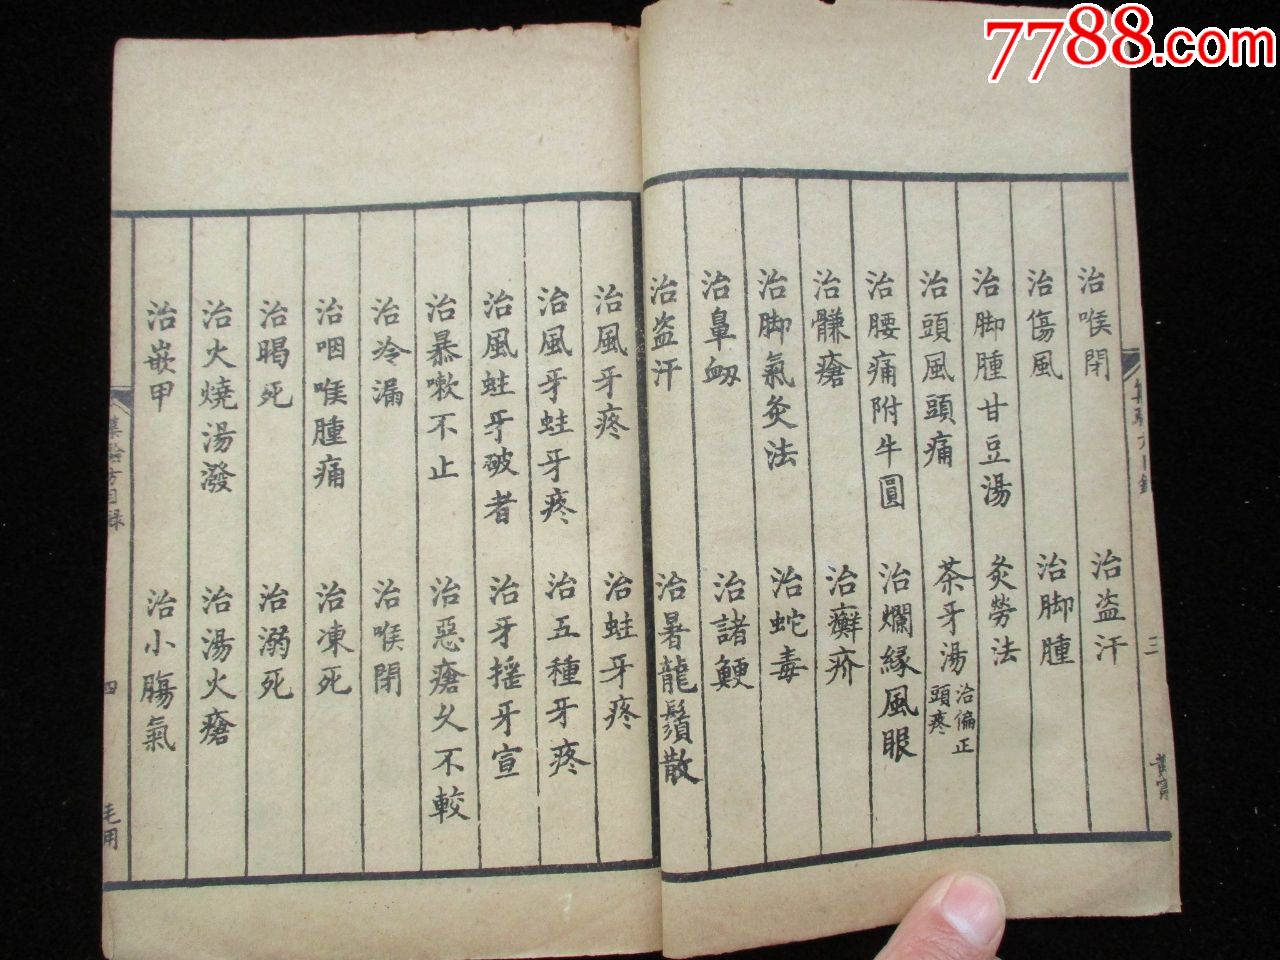 7788.com
治喉閉　治盗汗
治傷風　治脚腫
治脚腫甘豆湯　灸勞法
治頭風頭痛　茶牙湯治偏正頭疼
治腰痛附牛圓　治爛緣風眼
治臁瘡　治癬疥
治脚氣灸法　治蛇毒
治鼻衂　治諸鯁
治盗汗　治暑龍鬚散
三
治風牙疼　治蛀牙疼
治風牙蛀牙疼　治五種牙疼
治風蛀牙破者　治牙摇牙宣
治暴嗽不止　治惡瘡久不較
治冷漏　治喉閉
治咽喉腫痛　治凍死
治暍死　治溺死
治火燒湯潑　治湯火瘡
治嵌甲　治小膓氣
集驗方目録
四
毛用